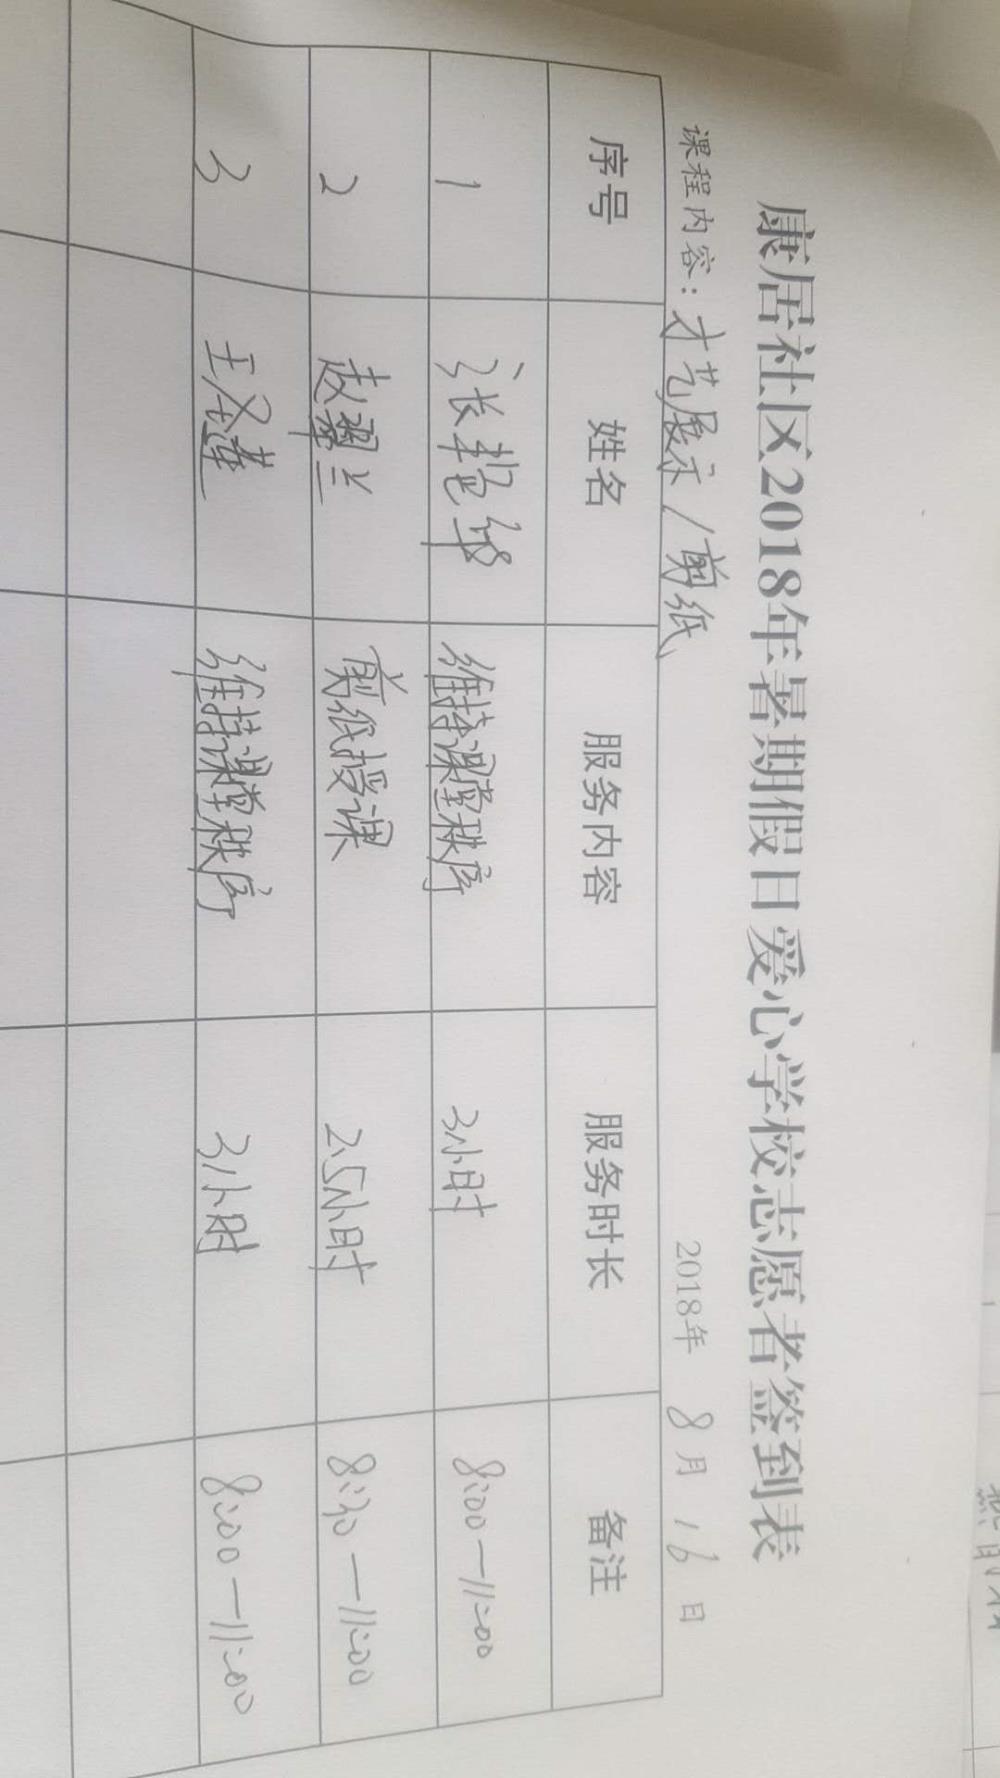 康居社区2018年暑期假日爱心学校志愿者签到表
课程内容：才艺展示/剪纸 2018年8月16日
序号 姓名 服务内容 服务时长 备注
1 张艳华 维持课堂秩序 3小时 8:00—11:00
2 赵翠兰 剪纸授课 2.5小时 8:30—11:00
3 王冬莲 维持课堂秩序 3小时 8:00—11:00